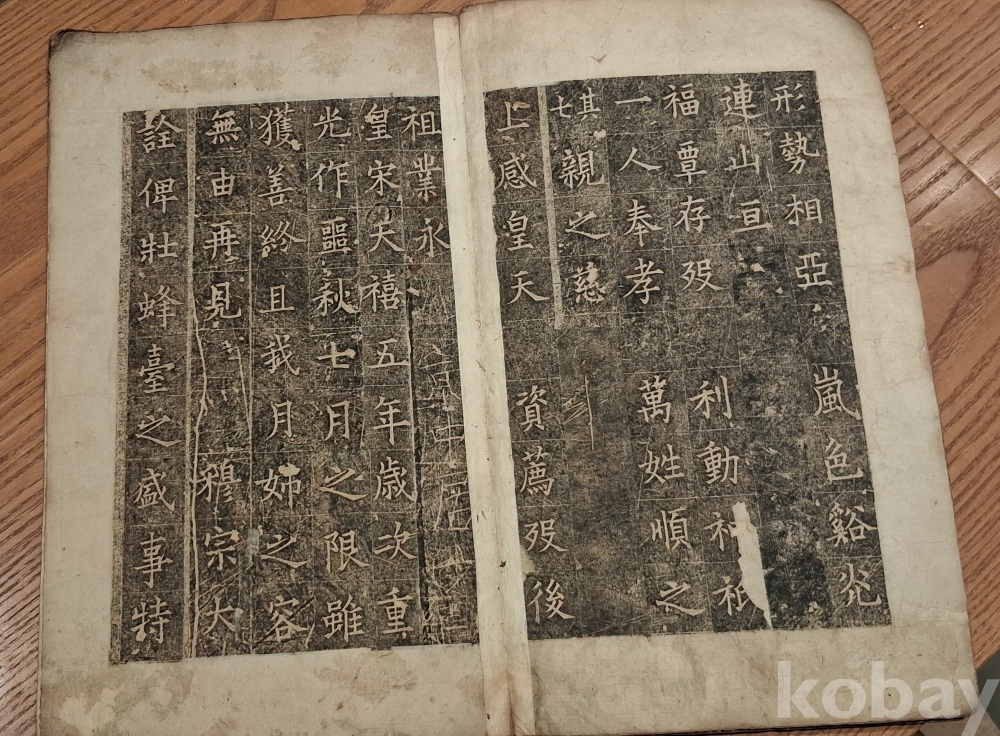 形勢相亞 嵐色谿光
連山亘
福覃存歿 利動神祇
一人奉孝 萬姓順之
其親之慈
七
上感皇天 資薦歿後
祖業永
皇宋天禧五年歲次重
光作噩秋七月之限雖
獲善終且我月姊之容
無由再見 穆宗大
詮俾壯蜂臺之盛事特
kobay